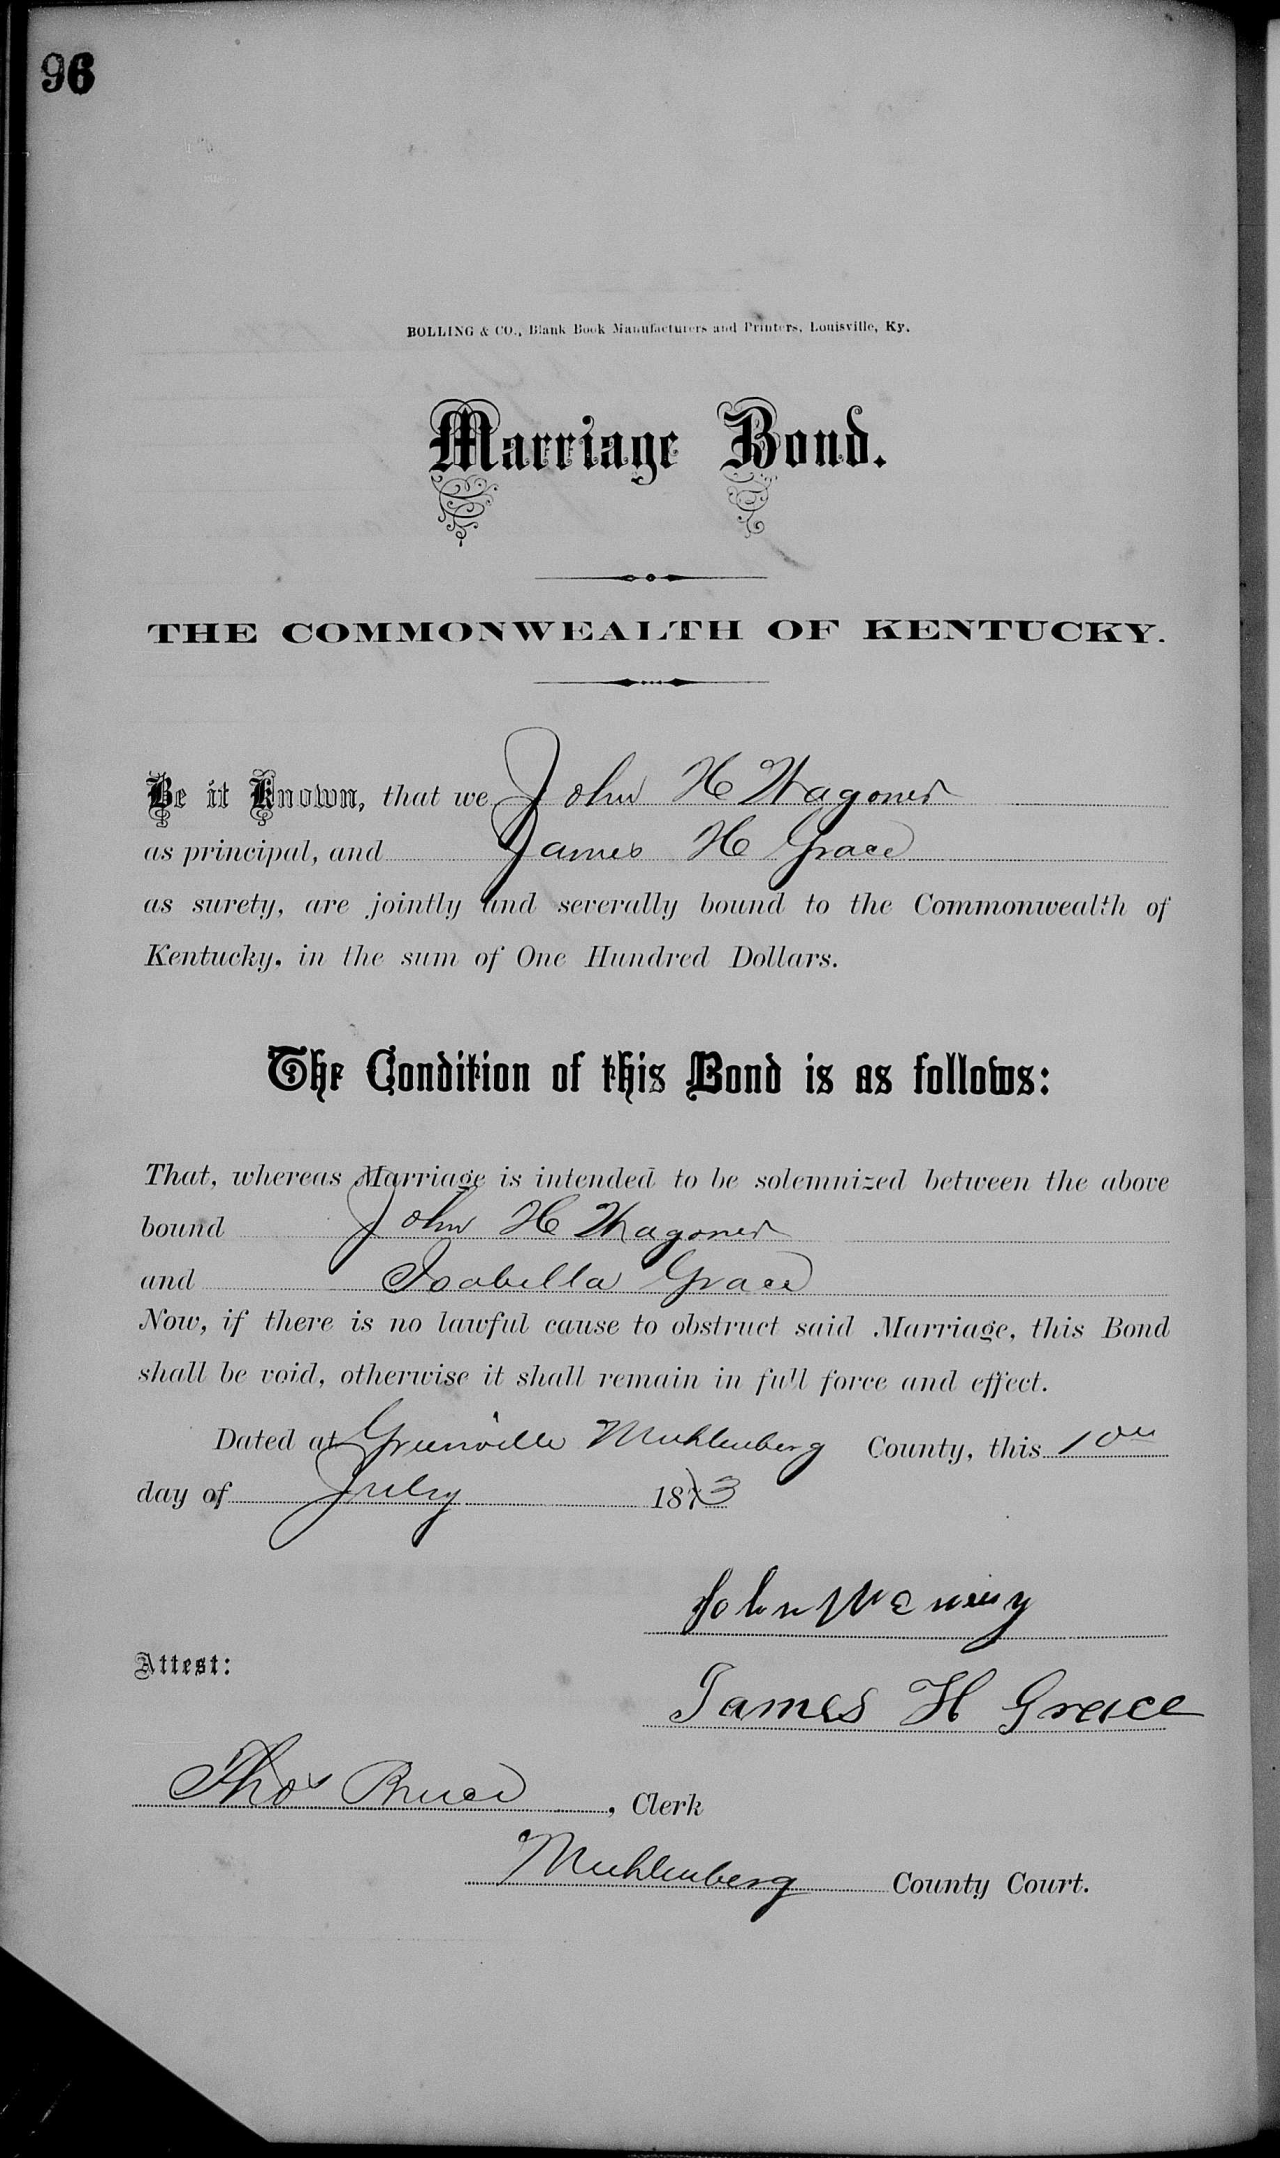 96
BOLLING & CO., Blank Book Manufacturers and Printers, Louisville, Ky.
Marriage Bond.
THE COMMONWEALTH OF KENTUCKY.
Be it Known, that we John H Wagoner
as principal, and James H Grace
as surety, are jointly and severally bound to the Commonwealth of
Kentucky, in the sum of One Hundred Dollars.
The Condition of this Bond is as follows:
That, whereas Marriage is intended to be solemnized between the above
bound John H Wagoner
and Isabella Grace
Now, if there is no lawful cause to obstruct said Marriage, this Bond
shall be void, otherwise it shall remain in full force and effect.
Dated at Greenville Muhlenberg County, this 10th
day of July 1873
John
Attest:
James H Grace
Thos Bruce, Clerk
Muhlenberg County Court.